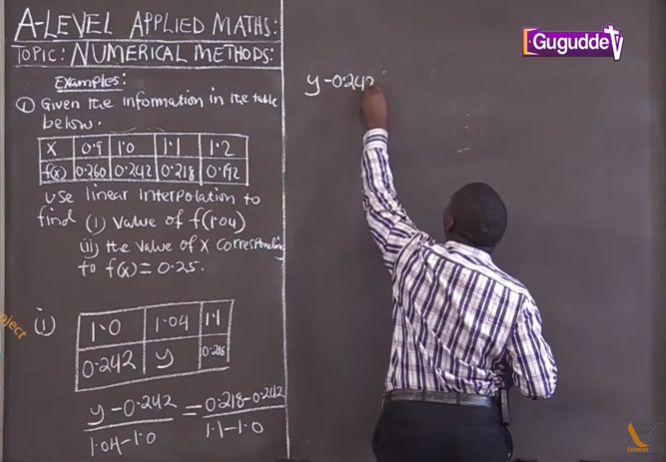 A-LEVEL APPLIED MATHS:
TOPIC: NUMERICAL METHODS:
Examples:
① Given the information in the table
below.
x 0.9 1.0 1.1 1.2
f(x) 0.260 0.242 0.218 0.192
use linear interpolation to
find (i) value of f(1.04)
(ii) the value of x corresponding
to f(x) = 0.25.
(i)
1.0 1.04 1.1
0.242 y 0.218
y-0.242 / 1.04-1.0 = 0.218-0.242 / 1.1-1.0
y-0.242
Gugudde TV
oject